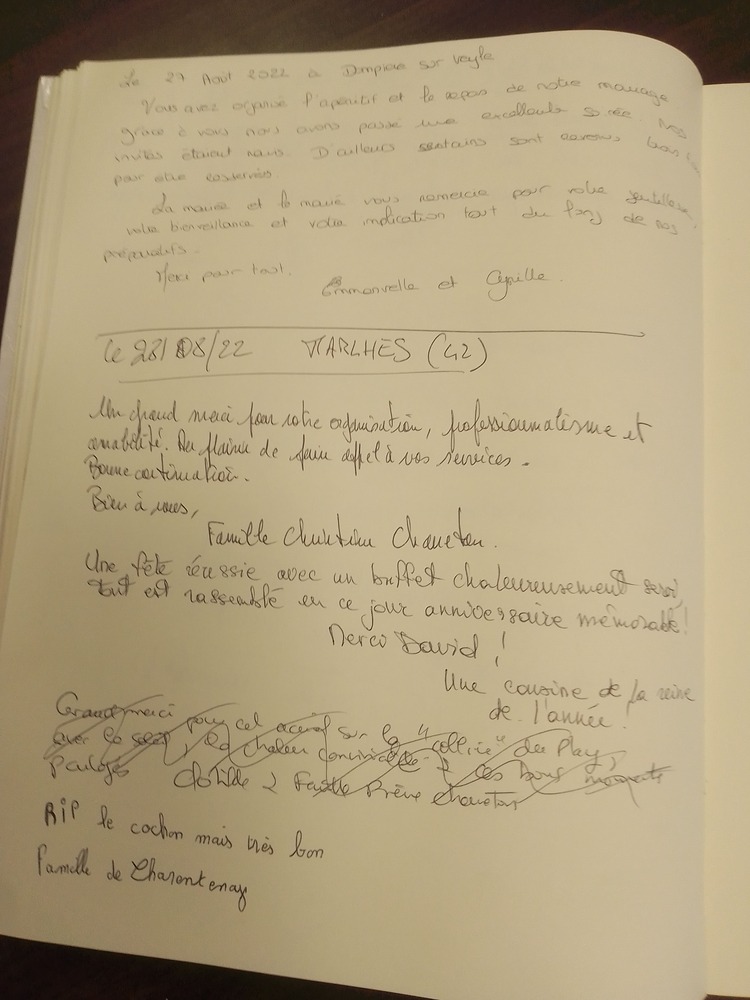 Le 27 Aout 2022 à Dompierre sur Veyle
Vous avez organisé l'apéritif et le repas de notre mariage
grâce à vous nous avons passé une excellente soirée. Nos
invités étaient ravis. D'ailleurs certains sont revenus
pour être
La mariée et le marié vous remercie pour votre gentillesse,
votre bienveillance et votre implication tout du long de nos
préparatifs.
Merci pour tout.
Emmanuelle et Cyrille.
Le 28/08/22 MARLHES (42)
Un grand merci pour votre organisation, professionnalisme et
amabilité. Au plaisir de faire appel à vos services.
Bonne continuation.
Bien à vous,
Famille Christine
Une fête réussie avec un buffet chaleureusement servi
tout est rassemblé en ce jour anniversaire mémorable!
Merci David!
Une cousine de la reine
de l'année!
Grand merci pour cet accueil sur la "colline" du Play,
avec la chaleur conviviale les bons moments
partagés Clotilde
RIP le cochon mais très bon
Famille de Charentenay